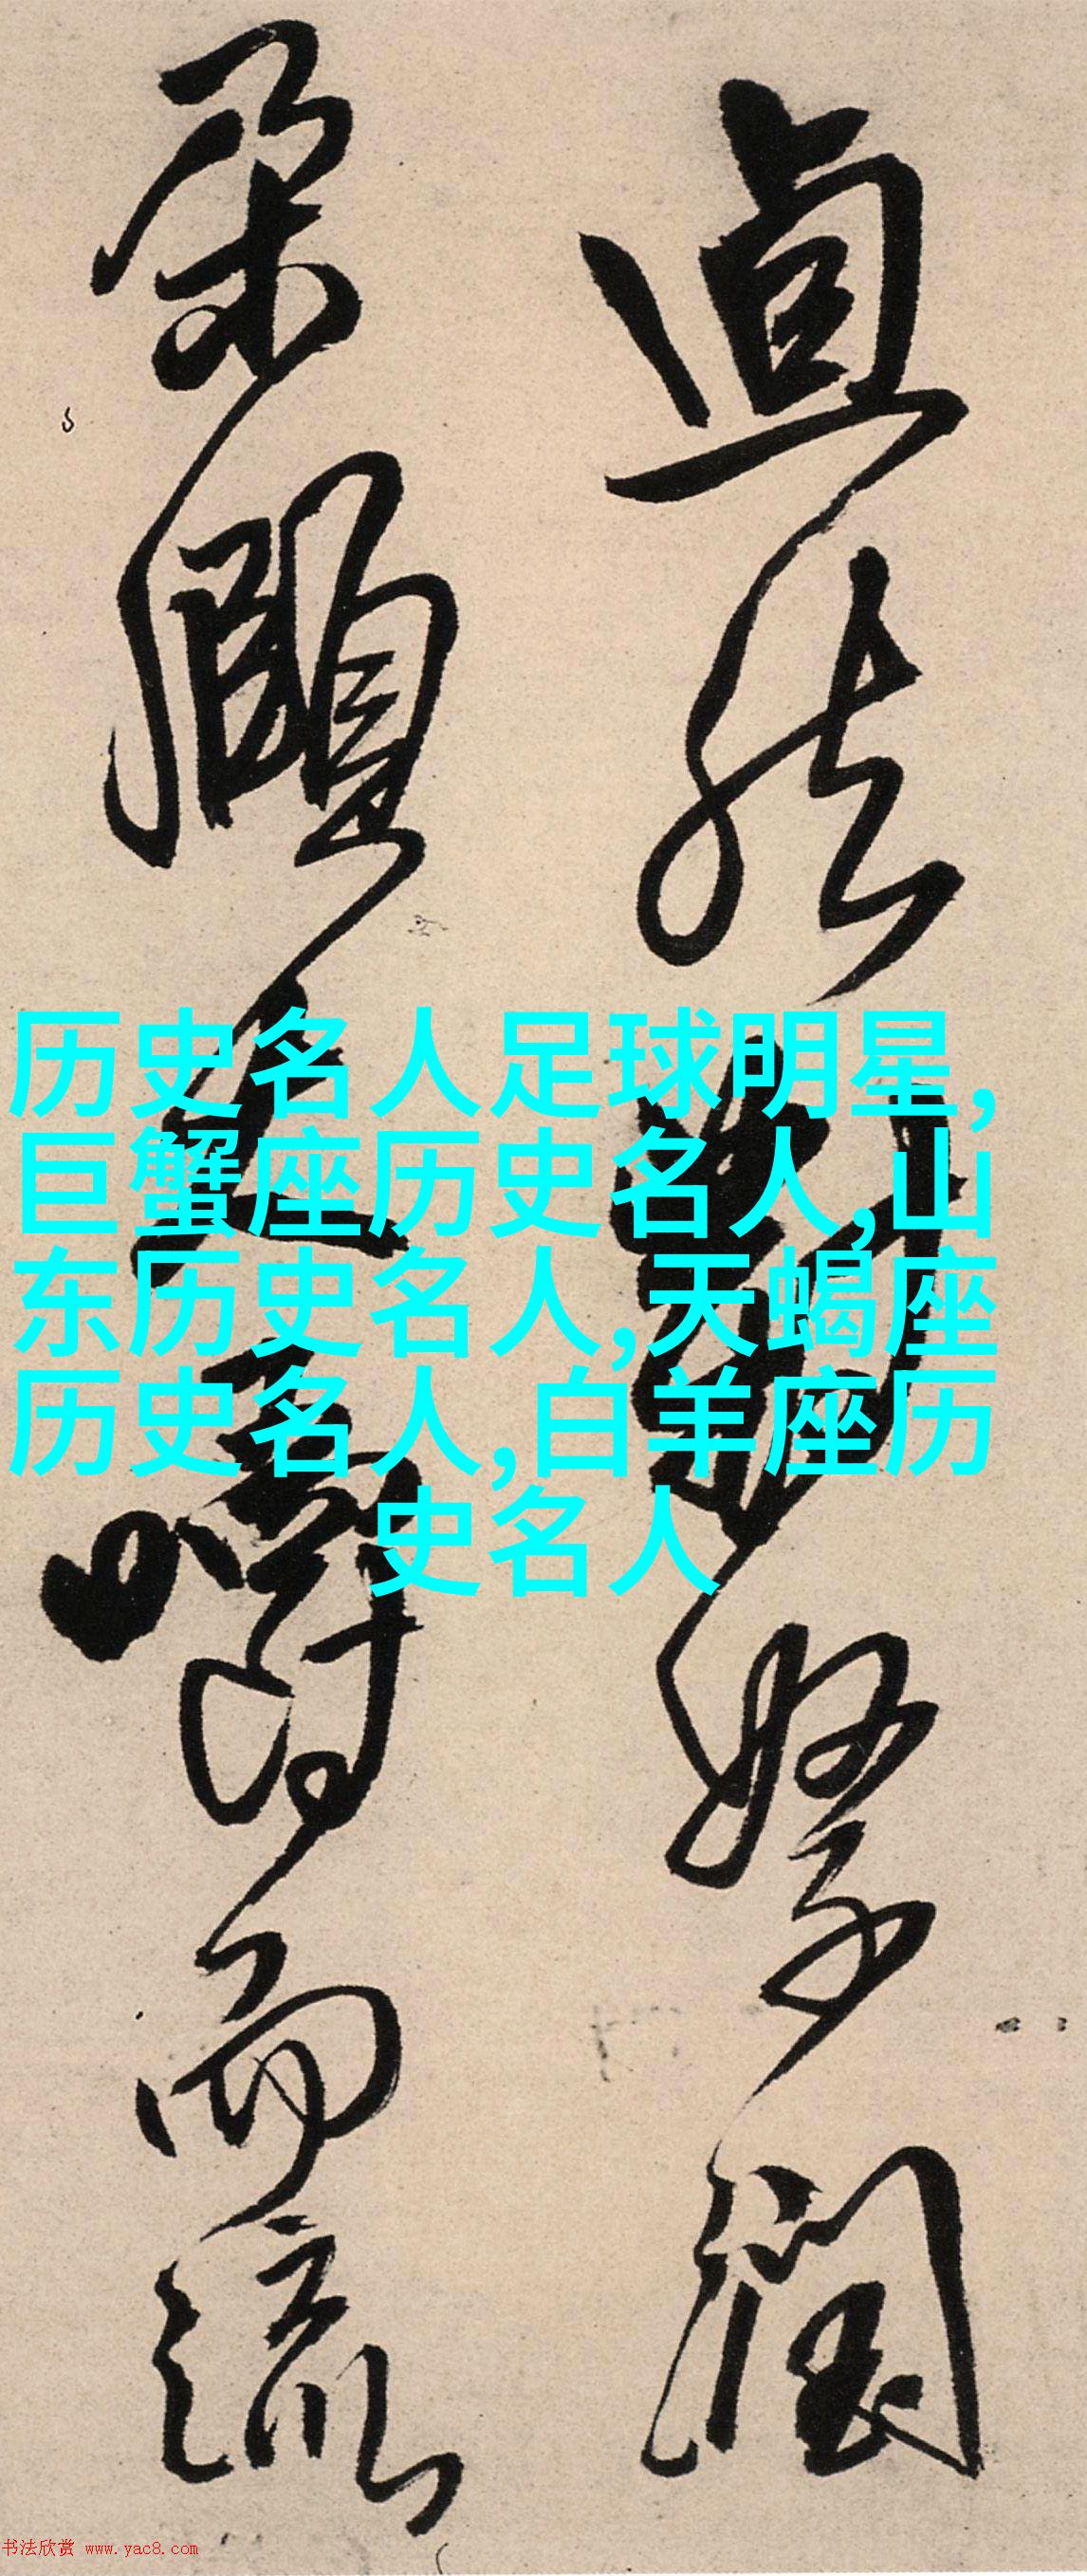 潤
朵頤嚼而流
历史名人足球明星,
巨蟹座历史名人,山
东历史名人,天蝎座
历史名人,白羊座历
史名人
书法欣赏 www.yac8.com